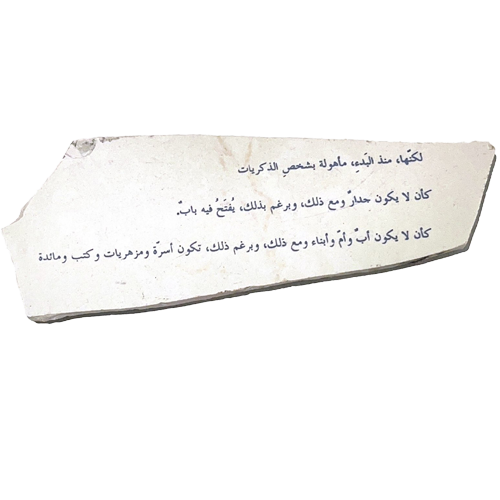 لكنّها، منذ البَدءِ، مأهولة بشخصِ الذكريات
كأن لا يكون جدارٌ ومع ذلك، وبرغم بذلك، يُفتَحُ فيه بابٌ.
كأن لا يكون أبٌ وأمّ وأبناء ومع ذلك، وبرغم ذلك، تكون أسرّة ومزهريات وكتب ومائدة